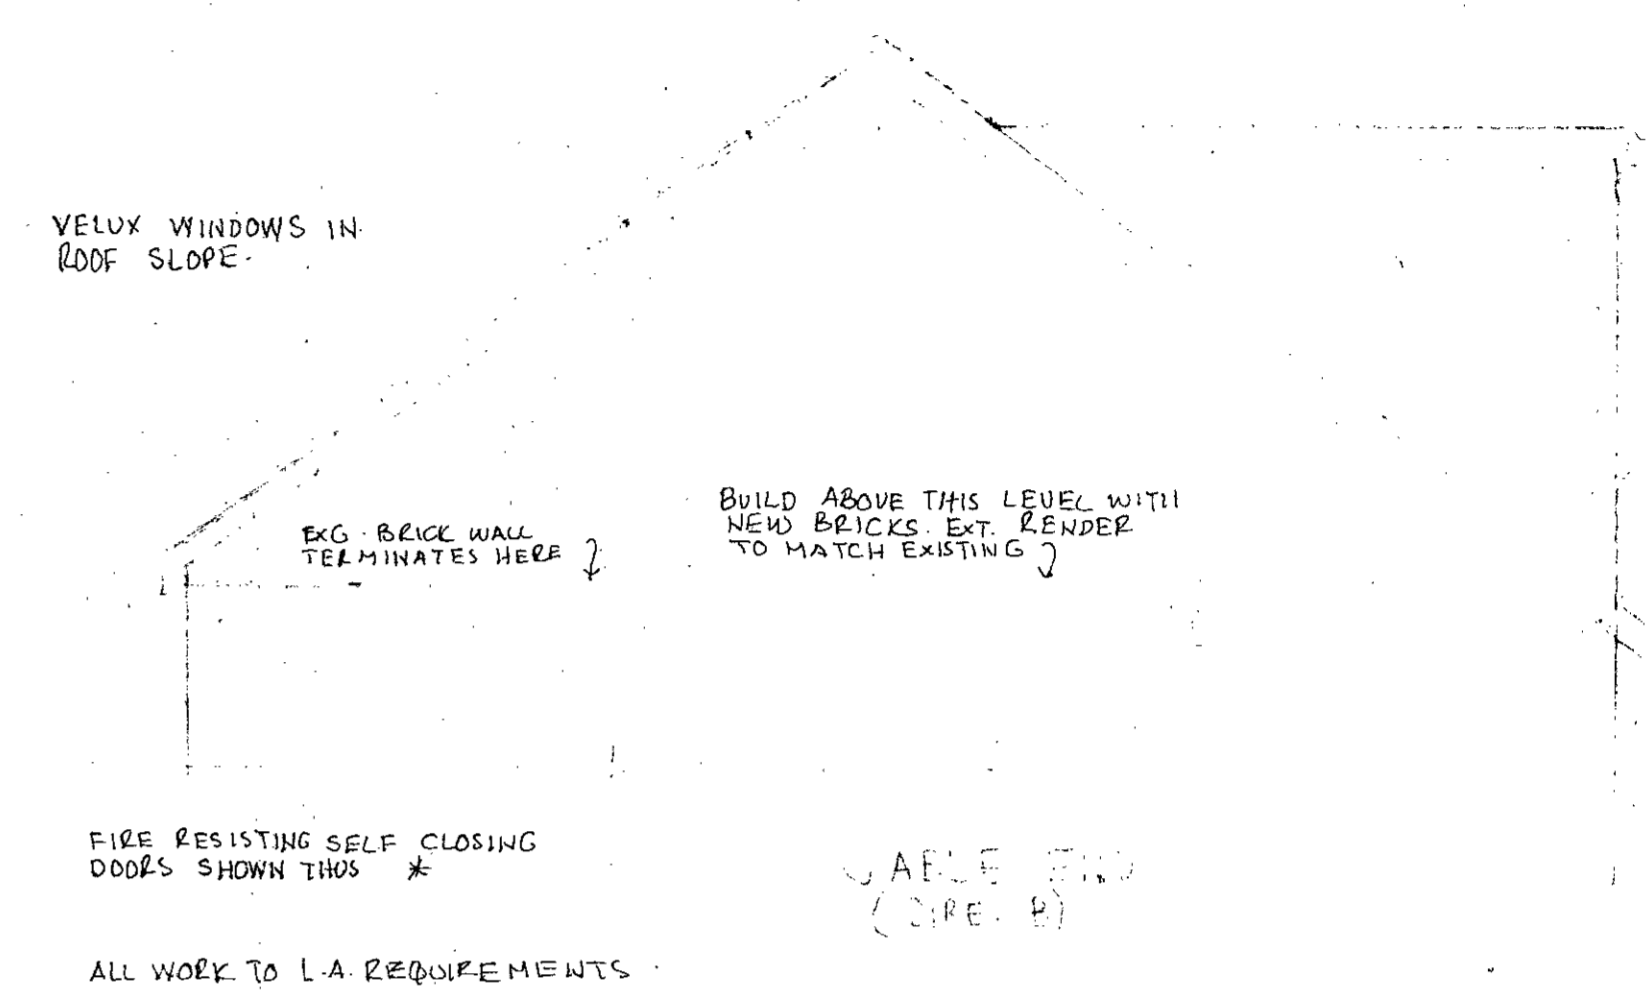 VELUX WINDOWS IN
ROOF SLOPE.
EXG. BRICK WALL
TERMINATES HERE
BUILD ABOVE THIS LEVEL WITH
NEW BRICKS. EXT. RENDER
TO MATCH EXISTING
FIRE RESISTING SELF CLOSING
DOORS SHOWN THUS *
GABLE END
ALL WORK TO L.A. REQUIREMENTS.